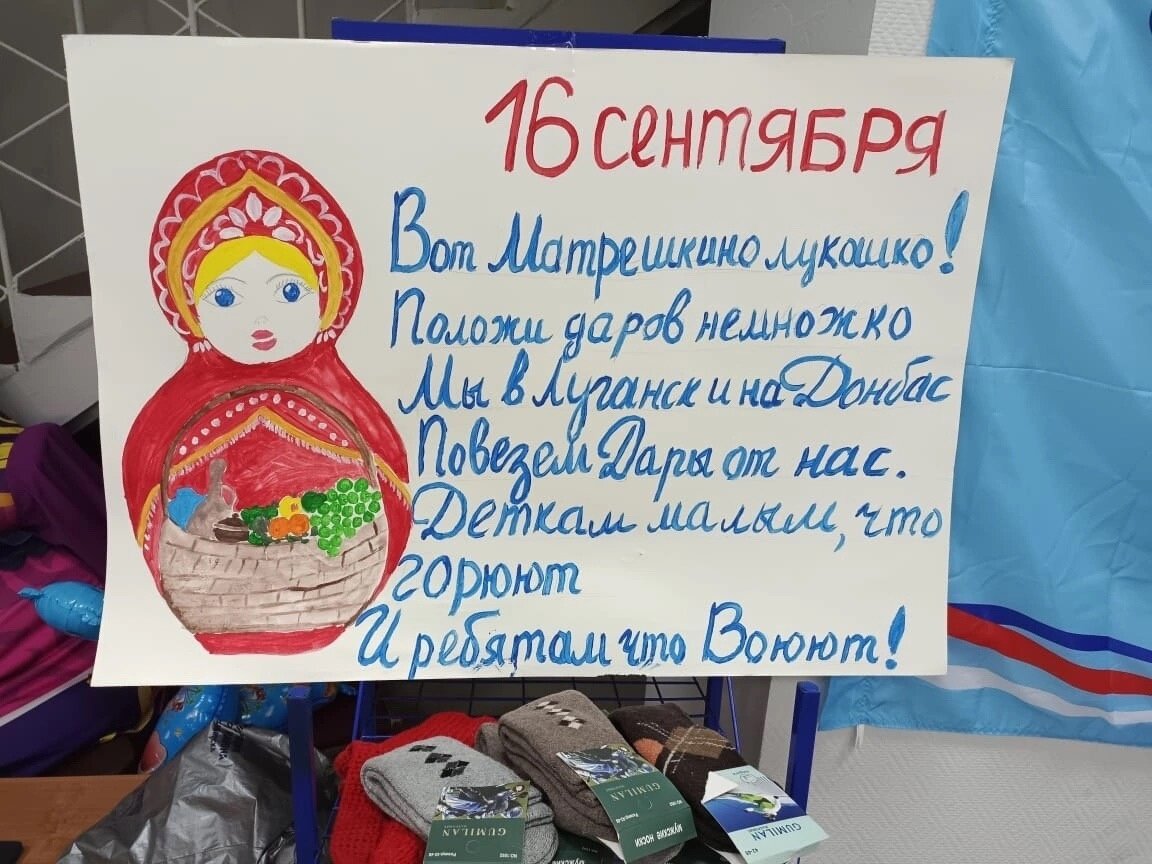 16 сентЯБРЯ
Вот Матрешкино лукошко!
Положи даров немножко
Мы в Луганск и на Донбас
Повезем Дары от нас.
Деткам малым, что
горюют
И ребятам что Воюют!
GUMILAN
GUMILAN
МУЖСКИЕ НОСКИ
GUMILAN